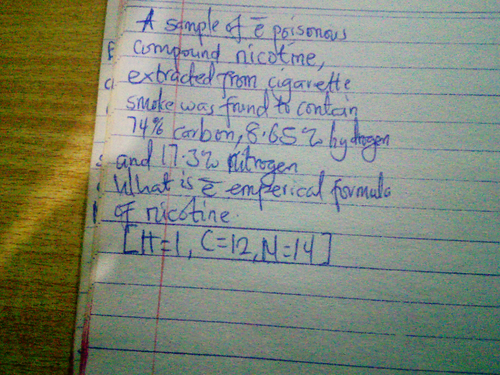 A sample of ē poisonous
compound nicotine,
extracted from cigarette
smoke was found to contain
74% carbon, 8.65% hydrogen
and 17.3% nitrogen
What is ē emperical formula
of nicotine.
[H=1, C=12, N=14]